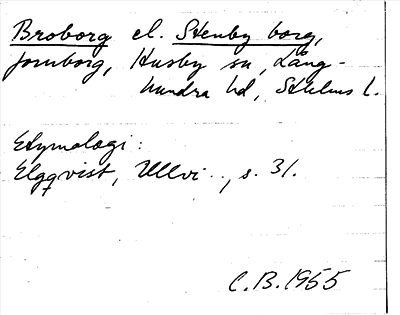 Broborg el. Stenby borg,
fornborg, Husby sn, Lång-
hundra hd, Sthlms l.
Etymologi:
Elgqvist, Ullvi.., s. 31.
C.B. 1955